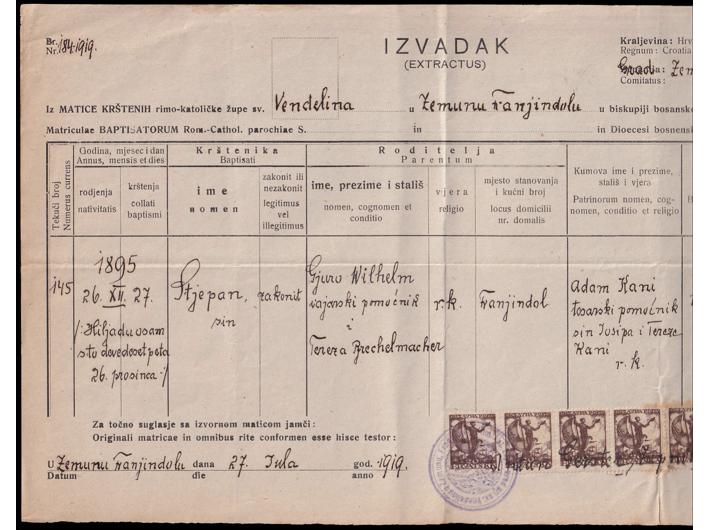 Br. 184-1919.
Nr.
IZVADAK
(EXTRACTUS)
Kraljevina: Hrv
Regnum: Croatia
Grad Zem
Comitatus:
Iz MATICE KRŠTENIH rimo-katoličke župe sv. Vendelina u Zemunu Franjindolu u biskupiji bosansko
Matriculae BAPTISATORUM Rom.-Cathol. parochiae S. in in Dioecesi bosnens
Tekući broj
Numerus currens
Godina, mjesec i dan
Annus, mensis et dies
rodjenja
nativitatis
krštenja
collati
baptismi
Krštenika
Baptisati
ime
nomen
zakonit ili
nezakonit
legitimus
vel
illegitimus
Roditelja
Parentum
ime, prezime i stališ
nomen, cognomen et
conditio
vjera
religio
mjesto stanovanja
i kućni broj
locus domicilii
nr. domalis
Kumova ime i prezime,
stališ i vjera
Patrinorum nomen, cog-
nomen, conditio et religio
145
1895
26. XII. 27.
/: Hiljadu osam
sto devedeset peta
26. prosinca :/
Stjepan,
sin
zakonit
Gjuro Wilhelm
pomoćnik
i
Tereza Brechelmacher
r.k.
Franjindol
Adam Kani
pomoćnik
sin Josipa i Tereze
Kani
r. k.
Za točno suglasje sa izvornom maticom jamči:
Originali matricae in omnibus rite conformen esse hisce testor:
U Zemunu Franjindolu dana 27. Jula god. 1919.
Datum die anno